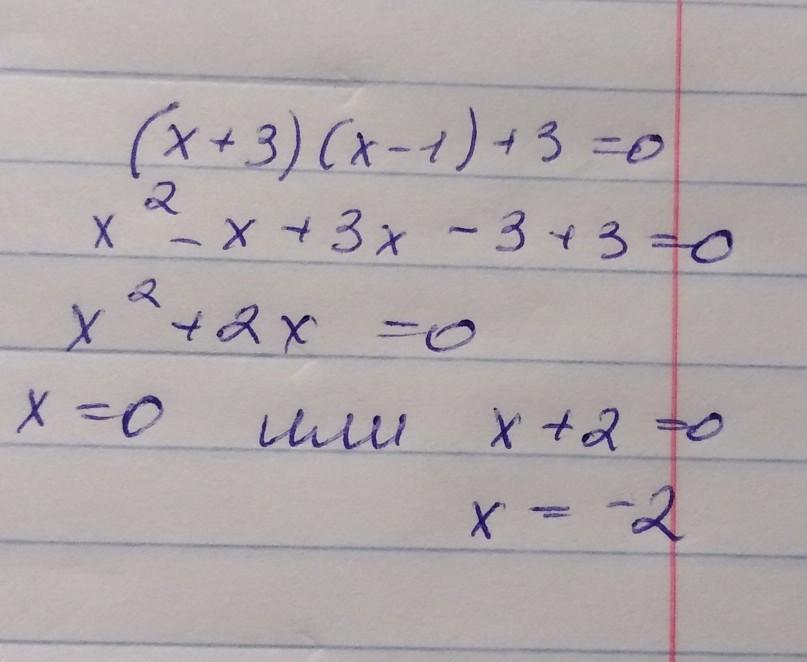 (x+3)(x-1)+3=0
x²-x+3x-3+3=0
x²+2x=0
x=0 или x+2=0
x=-2